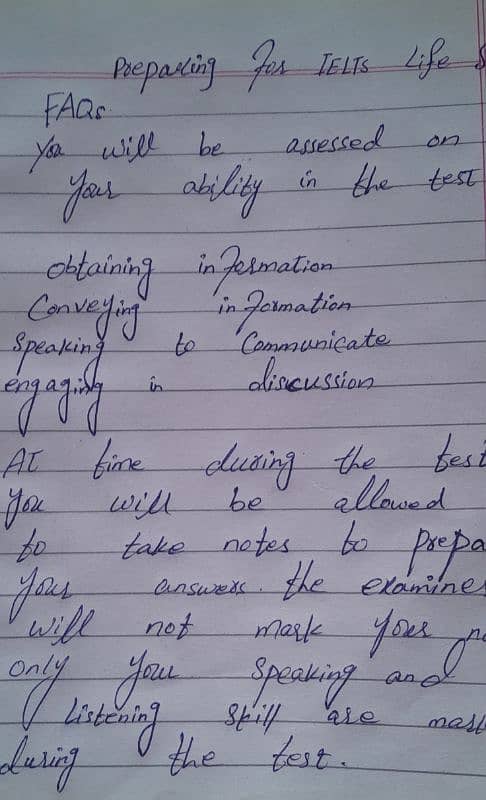 Preparing For IELTS Life
FAQs.
You will be assessed on
Your ability in the test
obtaining information
Conveying information
Speaking to Communicate
engaging in discussion
AT time during the test
you will be allowed
to take notes to prepa
your answers. the examine
will not mark your
only your speaking and
listening skill are mark
during the test.